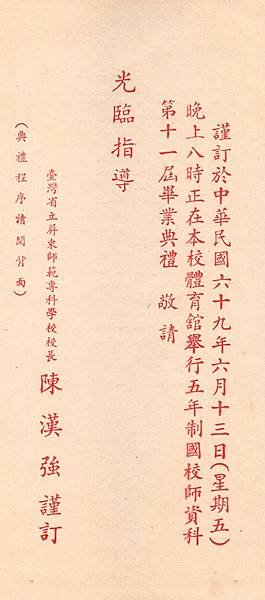 謹訂於中華民國六十九年六月十三日(星期五)
晚上八時正在本校體育舘舉行五年制國校師資科
第十一屆畢業典禮　敬請
光臨指導
臺灣省立屏東師範專科學校校長 陳漢強謹訂
(典禮程序請閱背面)